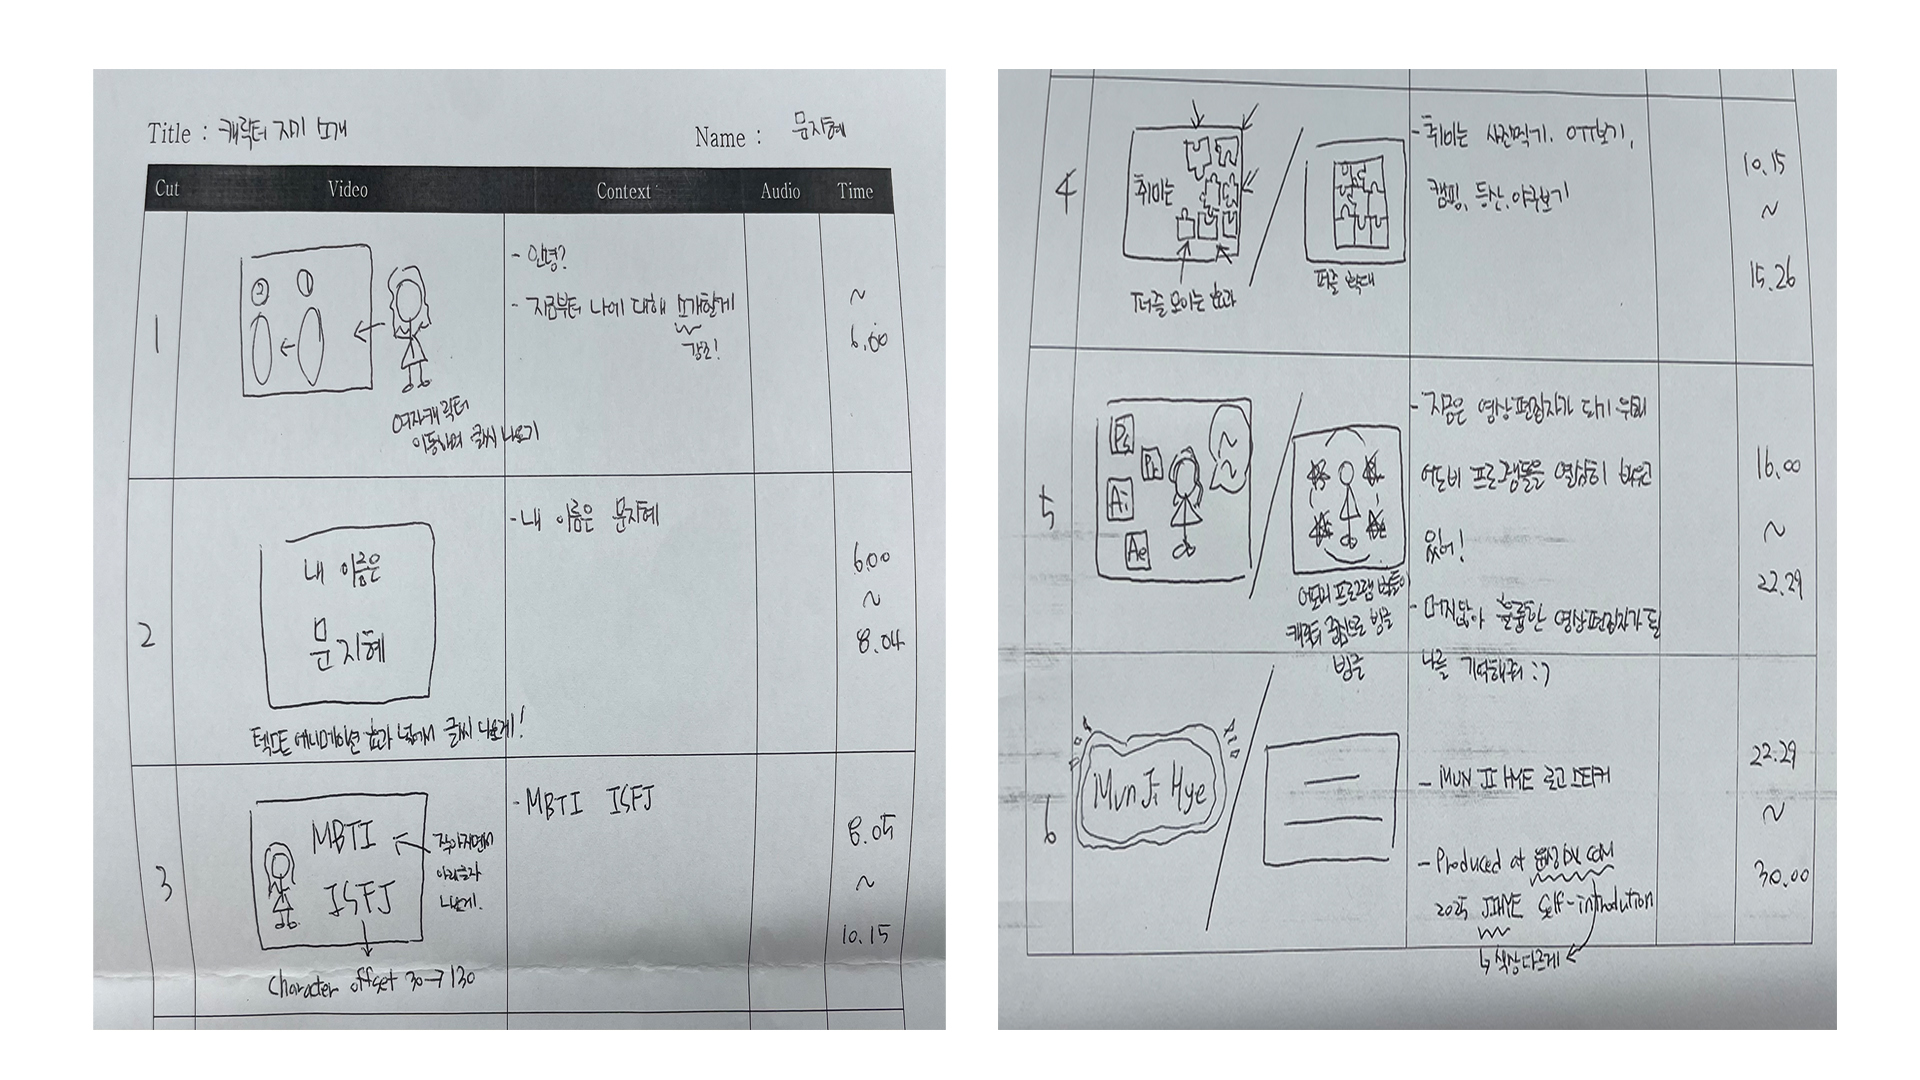 Title : 캐릭터 자기 소개
Name : 문지혜
Cut Video Context Audio Time
1
② ①
여자캐릭터
이동하며 글씨 나오기
- 안녕?
- 지금부터 나에 대해 소개할게
강조!
~
6.00
2
내 이름은
문지혜
텍스트 애니메이션 효과 넣어서 글씨 나오게!
- 내 이름은 문지혜
6.00
~
8.04
3
MBTI
ISFJ
작아지면서
아래글자
나오게.
Character offset 30→130
- MBTI ISFJ
8.05
~
10.15
4
취미는
퍼즐 모이는 효과
퍼즐 확대
- 취미는 사진찍기, OTT보기,
캠핑, 등산, 야구보기
10.15
~
15.26
5
Ps
Pr
Ai
Ae
~
~
어도비 프로그램 별들이
캐릭터 중심으로 빙글
빙글
- 지금은 영상편집자가 되기 위해
어도비 프로그램들을 열심히 배우고
있어!
- 머지않아 훌륭한 영상편집자가 될
나를 기억해줘 :)
16.00
~
22.29
6
Mun Ji Hye
- MUN JI HYE 로고 스티커
- Produced at .COM
2025 JIHYE Self-introdution
↳ 색상다르게
22.29
~
30.00